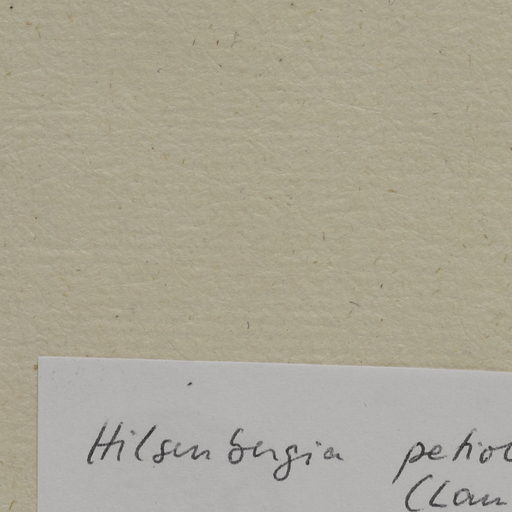 Hilsenbergia petiol
(Lam